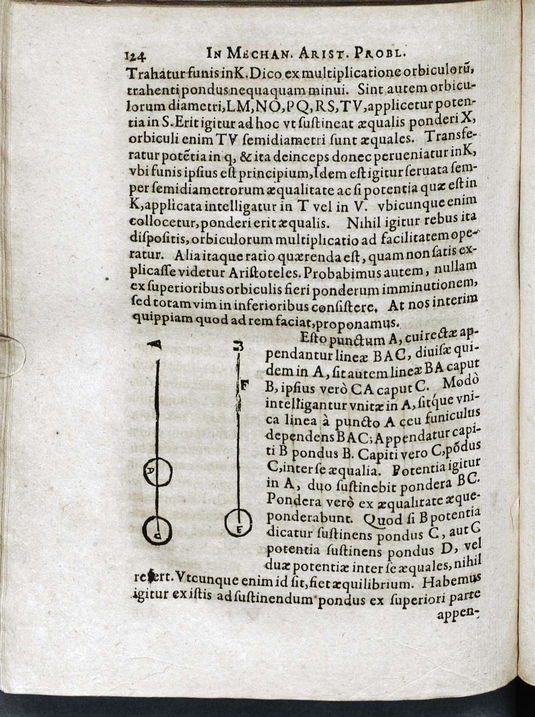 124 IN MECHAN. ARIST. PROBL.
Trahatur funis in K. Dico ex multiplicatione orbiculorũ,
trahenti pondus nequaquam minui. Sint autem orbicu-
lorum diametri, LM, NO, PQ, RS, TV, applicetur poten-
tia in S. Erit igitur ad hoc vt sustineat æqualis ponderi X,
orbiculi enim TV semidiametri sunt æquales. Transfe-
ratur potẽtia in q, & ita deinceps donec perueniatur in K,
vbi funis ipsius est principium, Idem est igitur seruata sem-
per semidiametrorum æqualitate ac si potentia quæ est in
K, applicata intelligatur in T vel in V. vbicunque enim
collocetur, ponderi erit æqualis. Nihil igitur rebus ita
dispositis, orbiculorum multiplicatio ad facilitatem ope-
ratur. Alia itaque ratio quærenda est, quam non satis ex-
plicasse videtur Aristoteles. Probabimus autem, nullam
ex superioribus orbiculis fieri ponderum imminutionem,
sed totam vim in inferioribus consistere. At nos interim
quippiam quod ad rem faciat, proponamus.
Esto punctum A, cui rectæ ap-
pendantur lineæ BAC, diuisæ qui-
dem in A, sit autem lineæ BA caput
B, ipsius verò CA caput C. Modò
intelligantur vnitæ in A, sitque vni-
ca linea à puncto A ceu funiculus
dependens BAC; Appendatur capi-
ti B pondus B. Capiti vero C, põdus
C, inter se æqualia. Potentia igitur
in A, duo sustinebit pondera BC.
Pondera verò ex æqualitate æque-
ponderabunt. Quod si B potentia
dicatur sustinens pondus C, aut C
potentia sustinens pondus D, vel
duæ potentiæ inter se æquales, nihil
refert. Vtcunque enim id sit, fiet æquilibrium. Habemus
igitur ex istis ad sustinendum pondus ex superiori parte
appen-
A
B
F
D
E